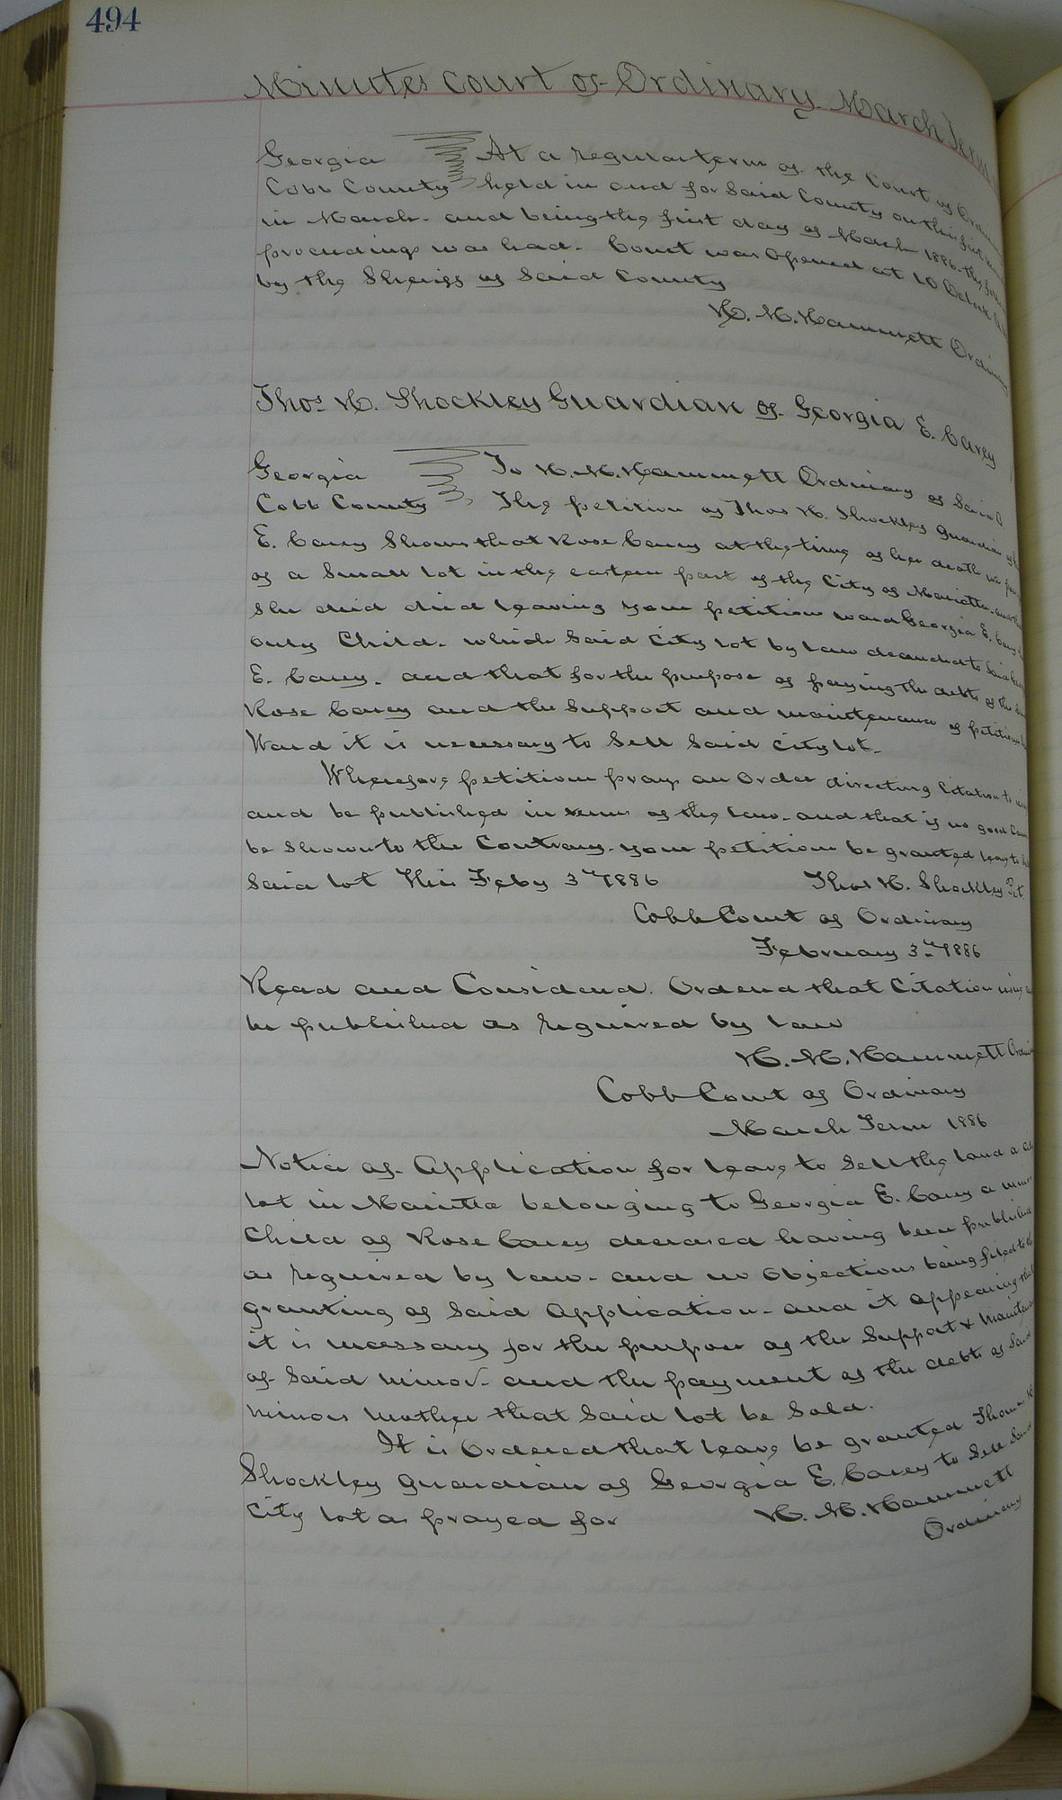 494
Minutes Court of Ordinary March Term
Georgia At a regular term of the Court of
Cobb County held in and for Said County on this first
in March and being the first day of March 1886 the
proceedings was had. Court was opened at 10 Oclock
by the Sheriff of Said County
H. M. Hammett Ordinary
Thos H. Shockley Guardian of Georgia E. Carey
Georgia To H. M. Hammett Ordinary of Said
Cobb County The petition of Thos H. Shockley Guardian of
E. Carey Shows that Rose Carey at the time of her death was
of a Small lot in the eastern part of the City of Marietta
She died leaving your petition ward Georgia E. Carey
only Child. which Said City lot by law decended to Said
E. Carey. and that for the purpose of paying the debts of the
Rose Carey and the Support and maintenance of
Ward it is necessary to Sell Said City lot.
Wherefore petitioner prays an Order directing Citation to
and be published in terms of the law. and that if no good
be Shown to the Contrary. your petitioner be granted leave to
Said lot This Feby 3rd 1886 Thos H. Shockley Pet.
Cobb Court of Ordinary
February 3rd 1886
Read and Considered. Ordered that Citation issue
be published as required by law
H. M. Hammett
Cobb Court of Ordinary
March Term 1886
Notice of Application for leave to Sell the land a
lot in Marietta belonging to Georgia E. Carey a minor
Child of Rose Carey deceased having been published
as required by law. and no Objections being filed to the
granting of Said Application. and it appearing that
it is necessary for the purpose of the Support &
of Said minor. and the payment of the debts of Said
minors mother that Said lot be Sold.
It is Ordered that leave be granted Thomas H
Shockley Guardian of Georgia E. Carey to Sell Said
City lot as prayed for H. M. Hammett
Ordinary